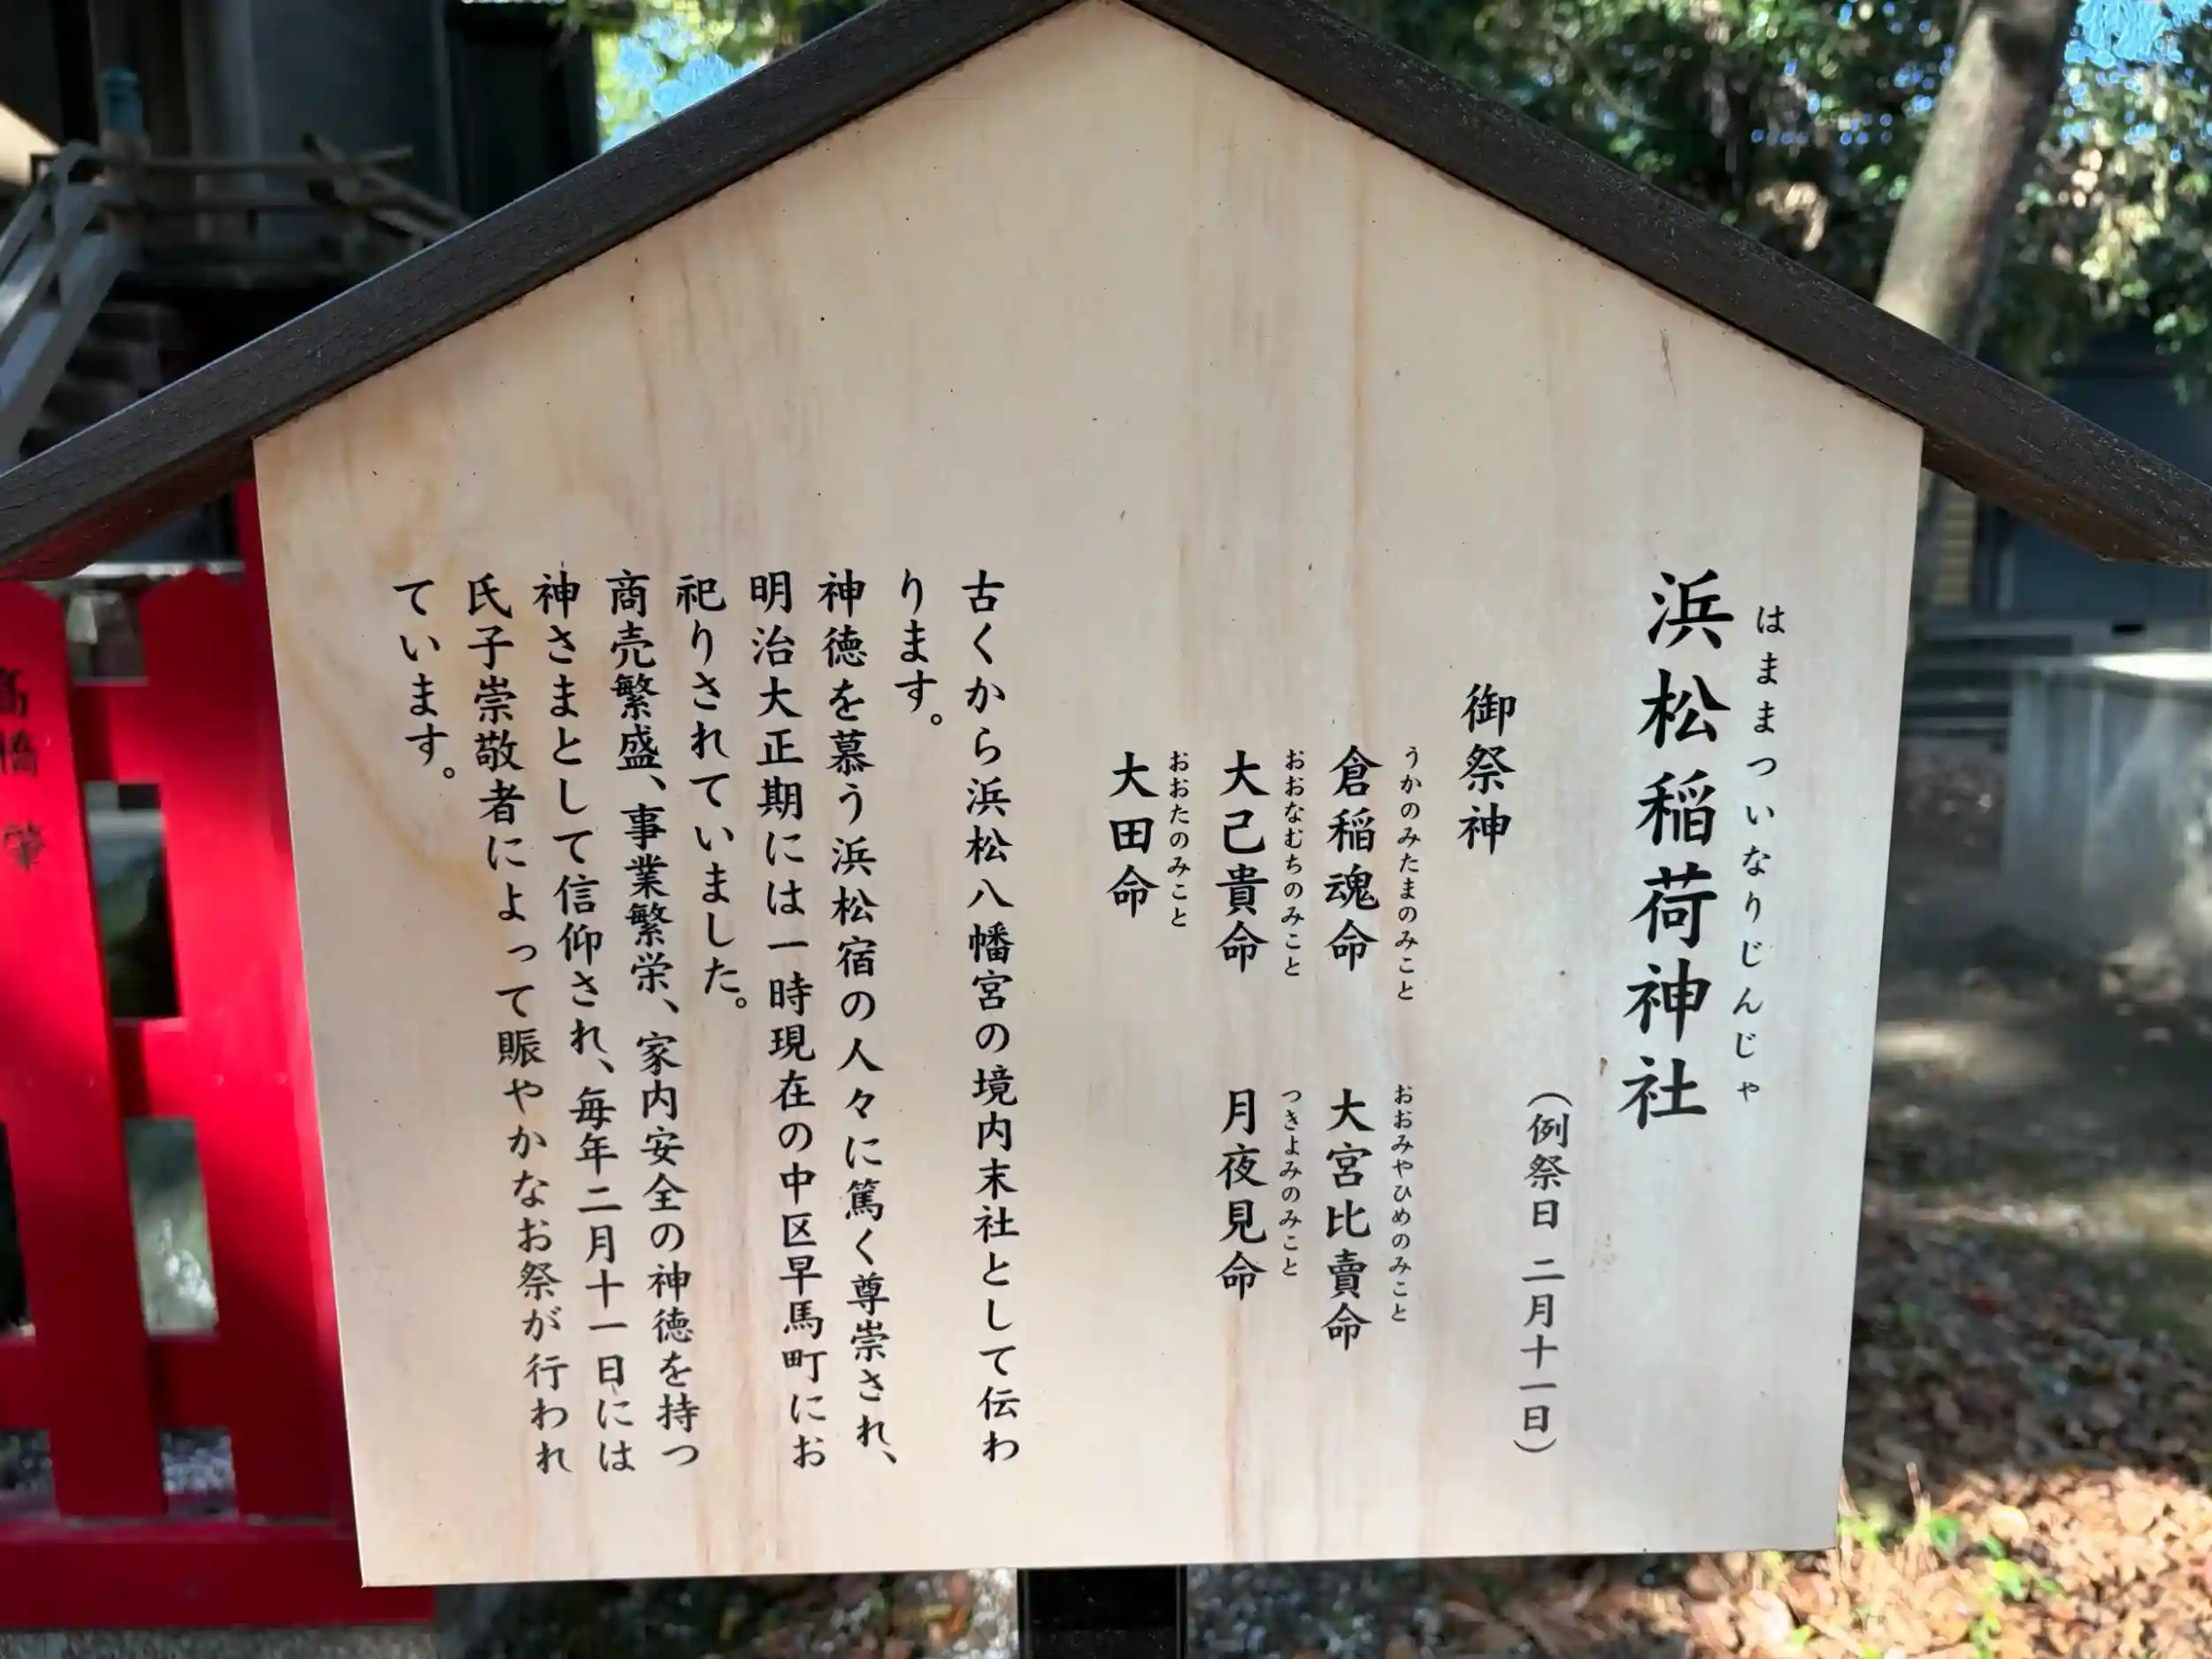 はままついなりじんじゃ
浜松稲荷神社
（例祭日 二月十一日）
御祭神
うかのみたまのみこと
倉稲魂命
おおみやひめのみこと
大宮比賣命
おおなむちのみこと
大己貴命
つきよみのみこと
月夜見命
おおたのみこと
大田命
古くから浜松八幡宮の境内末社として伝わ
ります。
神徳を慕う浜松宿の人々に篤く尊崇され、
明治大正期には一時現在の中区早馬町にお
祀りされていました。
商売繁盛、事業繁栄、家内安全の神徳を持つ
神さまとして信仰され、毎年二月十一日には
氏子崇敬者によって賑やかなお祭が行われ
ています。
髙橋 肇